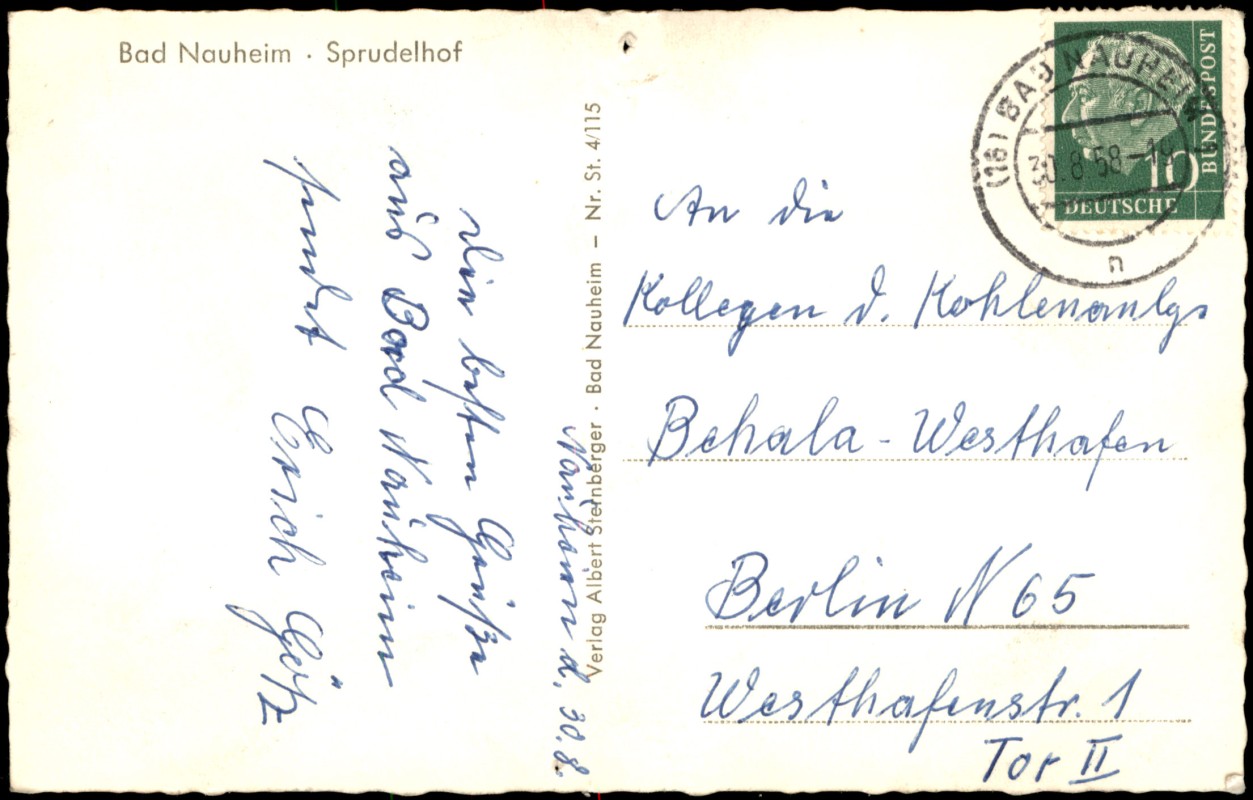 Bad Nauheim · Sprudelhof
Nauheim d. 30.8.
Die besten Grüße
aus Bad Nauheim
sendet Erich Götz
Verlag Albert Sternberger · Bad Nauheim – Nr. St. 4/115
(16) BAD NAUHEIM
30.8.58-19
n
10
DEUTSCHE
BUNDESPOST
An die
Kollegen d. Kohlenanlge
Behala - Westhafen
Berlin N 65
Westhafenstr. 1
Tor II